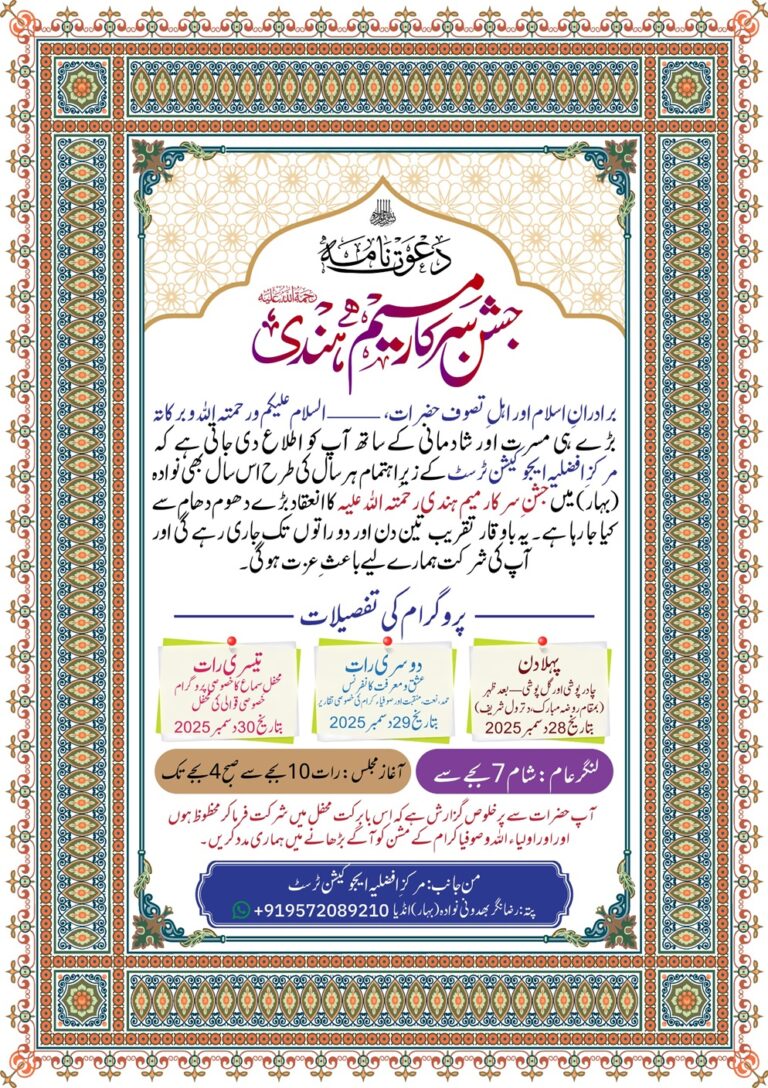 دعوت نامہ
جشن سرکار میم ہے ہندی رحمۃ اللہ علیہ
برادرانِ اسلام اور اہلِ تصوف حضرات، ——— السلام علیکم ورحمتہ اللہ وبرکاتہ
بڑے ہی مسرت اور شادمانی کے ساتھ آپ کو اطلاع دی جاتی ہے کہ
مرکزِ افضلیہ ایجوکیشن ٹرسٹ کے زیرِ اہتمام ہر سال کی طرح اس سال بھی نوادہ
(بہار) میں جشنِ سرکار میم ہندی رحمتہ اللہ علیہ کا انعقاد بڑے دھوم دھام سے
کیا جا رہا ہے۔ یہ باوقار تقریب تین دن اور دو راتوں تک جاری رہے گی اور
آپ کی شرکت ہمارے لیے باعثِ عزت ہوگی۔
پروگرام کی تفصیلات
پہلا دن
چادر پوشی اور گل پوشی — بعد ظہر
(بمقام روضہ مبارک، دترول شریف)
بتاریخ 28 دسمبر 2025
دوسری رات
عشق و معرفت کانفرنس
حمد، نعت، منقبت اور صوفیاء کرام کی خصوصی تقاریر
بتاریخ 29 دسمبر 2025
تیسری رات
محفل سماع کا خصوصی پروگرام
خصوصی قوالی کی محفل
بتاریخ 30 دسمبر 2025
لنگر عام : شام 7 بجے سے
آغاز مجلس : رات 10 بجے سے صبح 4 بجے تک
آپ حضرات سے پر خلوص گزارش ہے کہ اس بابرکت محفل میں شرکت فرما کر محظوظ ہوں
اور اور اولیاء اللہ و صوفیا کرام کے مشن کو آگے بڑھانے میں ہماری مدد کریں۔
من جانب: مرکزِ افضلیہ ایجوکیشن ٹرسٹ
پتہ: رضا نگر بھدونی نوادہ (بہار) انڈیا +919572089210